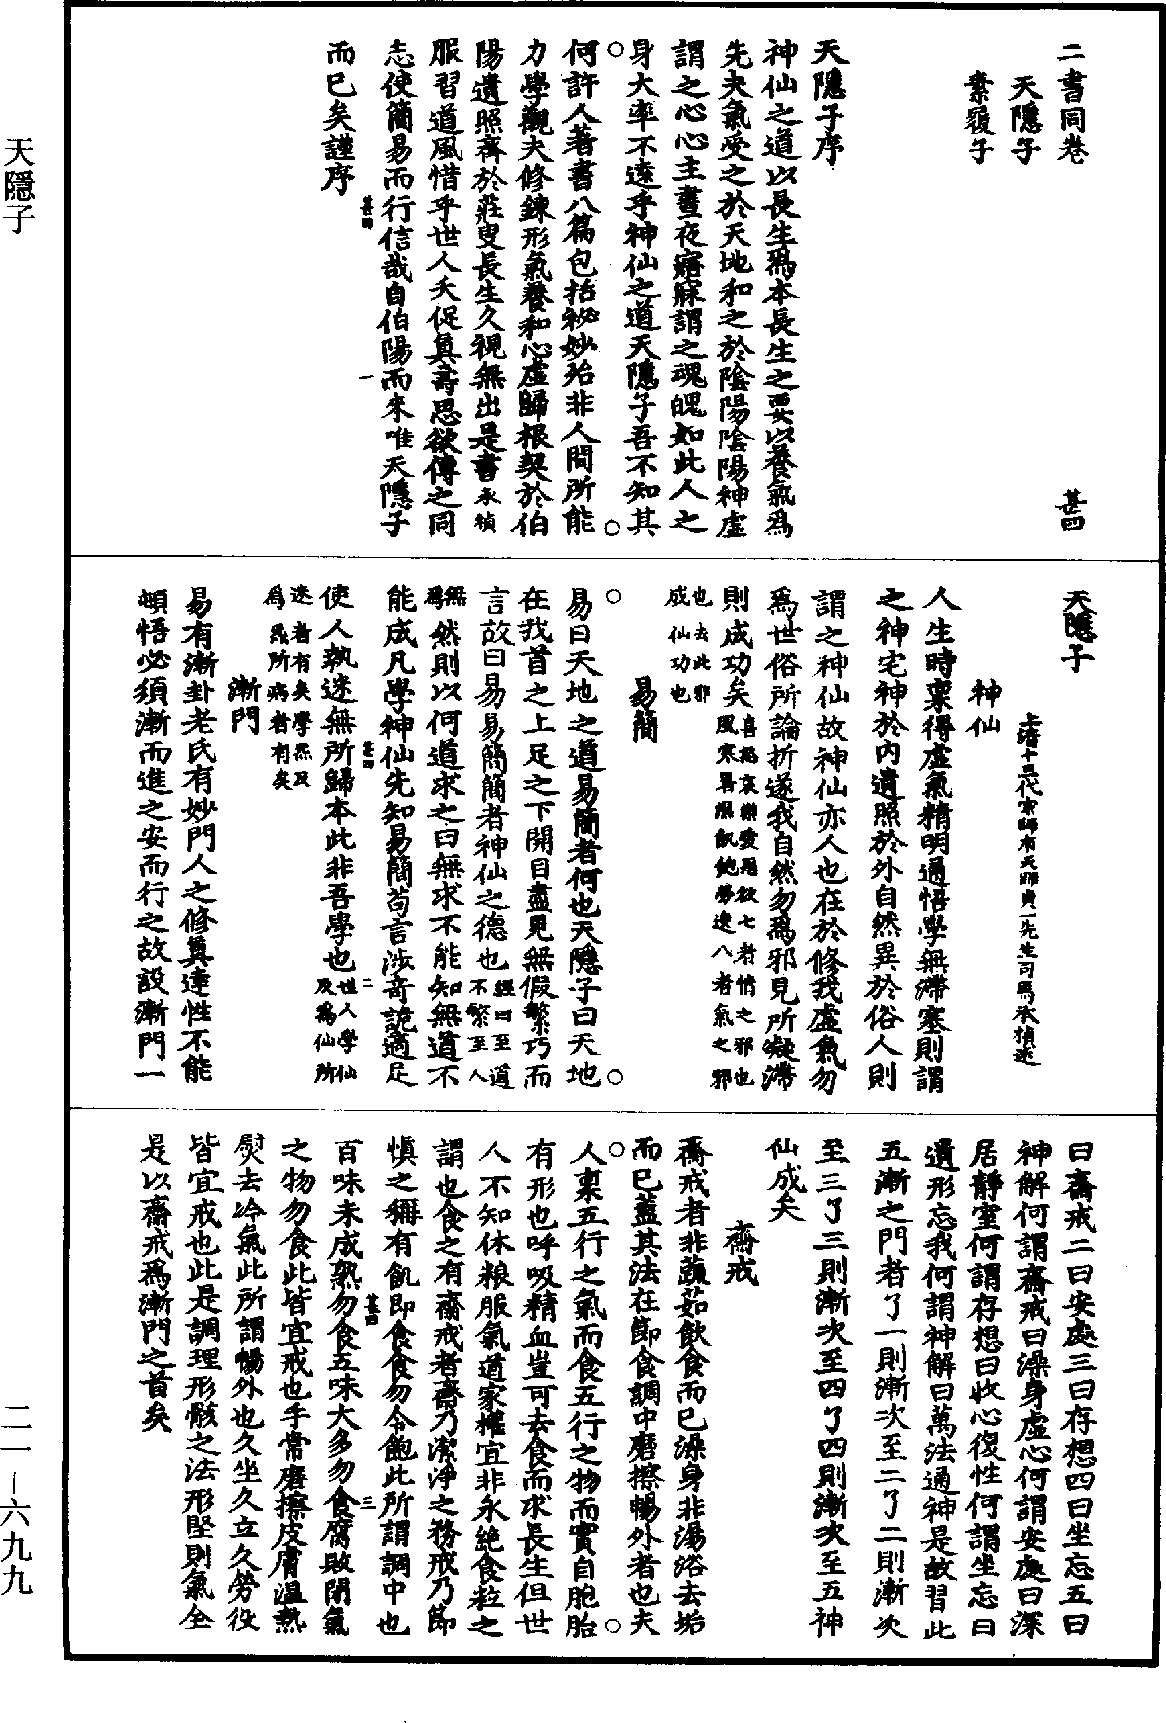 天隱子
二一—六九九
二書同卷
甚四
天隱子
素履子
天隱子序
神仙之道以長生爲本長生之要以養氣爲
先夫氣受之於天地和之於陰陽陰陽神虛
謂之心心主晝夜寤寐謂之魂魄如此人之
身大率不遠乎神仙之道天隱子吾不知其
何許人著書八篇包括秘妙殆非人間所能
力學觀夫修鍊形氣養和心虛歸根契於伯
陽遺照齊於莊叟長生久視無出是書承禎
服習道風惜乎世人夭促真壽思欲傳之同
志使簡易而行信哉自伯陽而來唯天隱子
甚四
一
而已矣謹序
天隱子
上清十三代宗師有天師貞一先生司馬承禎述
神仙
人生時稟得虛氣精明通悟學無滯塞則謂
之神宅神於內遺照於外自然異於俗人則
謂之神仙故神仙亦人也在於修我虛氣勿
爲世俗所論折遂我自然勿爲邪見所凝滯
則成功矣喜怒哀樂愛惡欲七者情之邪也
風寒暑濕飢飽勞逸八者氣之邪
也去此邪
成仙功也
易簡
易曰天地之道易簡者何也天隱子曰天地
在我首之上足之下開目盡見無假繁巧而
言故曰易簡易簡者神仙之德也經曰至道
不繁至人
無
爲然則以何道求之曰無求不能知無道不
能成凡學神仙先知易簡苟言涉奇詭適足
甚四
二
使人執迷無所歸本此非吾學也世人學仙
反爲仙所
迷者有矣學炁反
爲炁所病者有矣
漸門
易有漸卦老氏有妙門人之修真達性不能
頓悟必須漸而進之安而行之故設漸門一
曰齋戒二曰安處三曰存想四曰坐忘五曰
神解何謂齋戒曰澡身虛心何謂安處曰深
居靜室何謂存想曰收心復性何謂坐忘曰
遺形忘我何謂神解曰萬法通神是故習此
五漸之門者了一則漸次至二了二則漸次
至三了三則漸次至四了四則漸次至五神
仙成矣
齋戒
齋戒者非蔬茹飲食而已澡身非湯浴去垢
而已蓋其法在節食調中磨擦暢外者也夫
人稟五行之氣而食五行之物而實自胞胎
有形也呼吸精血豈可去食而求長生但世
人不知休粮服氣道家權宜非永絕食粒之
謂也食之有齋戒者齋乃潔淨之務戒乃節
慎之稱有飢即食食勿令飽此所謂調中也
甚四
三
百味未成熟勿食五味大多勿食腐敗閉氣
之物勿食此皆宜戒也手常磨擦皮膚溫熱
熨去冷氣此所謂暢外也久坐久立久勞役
皆宜戒也此是調理形骸之法形堅則氣全
是以齋戒爲漸門之首矣